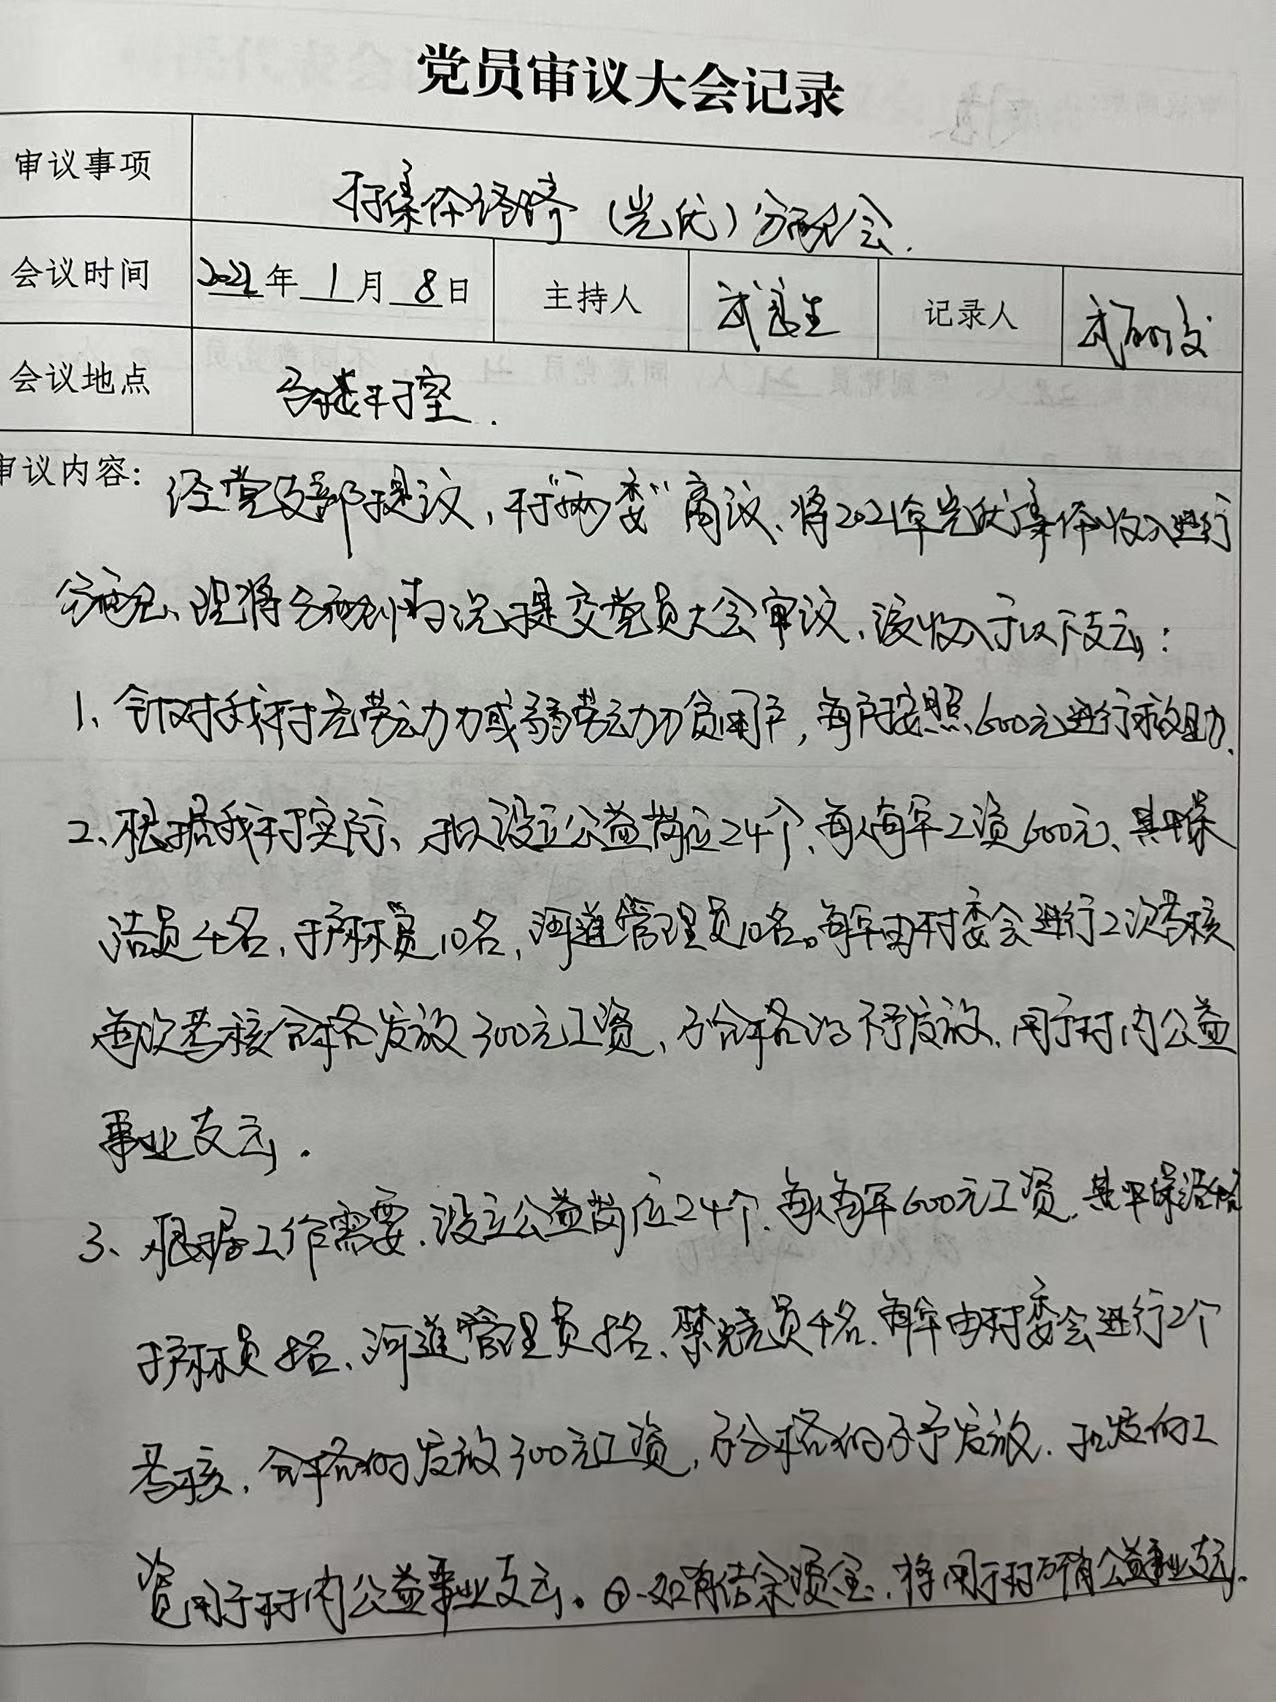 党员审议大会记录
审议事项 村集体经济（光伏）分配会.
会议时间 2022年1月8日 主持人 武 生 记录人 武
会议地点 村室.
审议内容: 经党支部提议，村"两委"商议、将2021年光伏集体收入进行
分配、现将分配情况提交党员大会审议、该收入于以下支出：
1、针对我村无劳动力或弱劳动力贫困户，每户按照600元进行救助.
2、根据我村实际、拟设立公益岗位24个、每人每年工资600元、其中保
洁员4名，护林员10名，河道管理员10名。每年由村委会进行2次考核
每次考核合格发放300元工资、不合格的不予发放、用于村内公益
事业支出.
3、根据工作需要、设立公益岗位24个、每人每年600元工资、其中保洁
护林员 名、河道管理员 名、禁烧员4名、每年由村委会进行2个
考核，合格的发放300元工资，不合格的不予发放. 扣发的工
资用于村内公益事业支出。④.如有结余资金、将用于村所有公益事业支出.